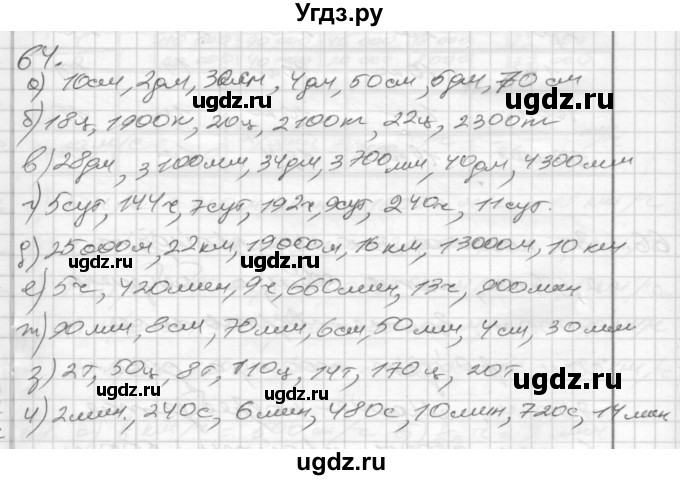 Угдз.ру
64.
а) 10см, 2дм, 30см, 4дм, 50см, 6дм, 70см
б) 18ц, 1900кг, 20ц, 2100кг, 22ц, 2300кг
в) 28дм, 3100мм, 34дм, 3700мм, 40дм, 4300мм
г) 5сут, 144ч, 7сут, 192ч, 9сут, 240ч, 11сут.
д) 25000м, 22км, 19000м, 16км, 13000м, 10км
е) 5ч, 420мин, 9ч, 660мин, 13ч, 900мин
ж) 90мм, 8см, 70мм, 6см, 50мм, 4см, 30мм
з) 2т, 50ц, 8т, 110ц, 14т, 170ц, 20т
и) 2мин., 240с, 6мин, 480с, 10мин, 720с, 14мин
угдз.ру
угдз.ру
угдз.ру
угдз.ру
угдз.ру
угдз.ру
угдз.ру
угдз.ру
угдз.ру
угдз.ру